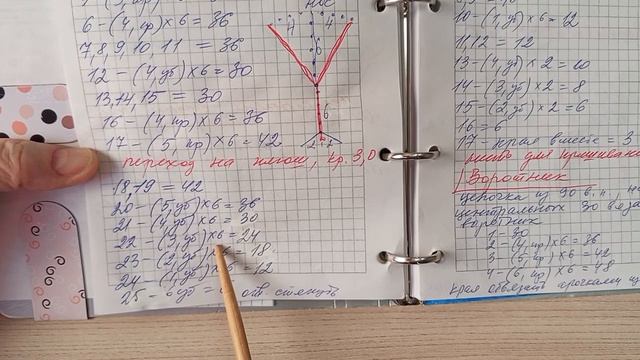 6-(4,пр)×6=36
7,8,9,10,11 = 36
12-(4,уб)×6=30
13,14,15 = 30
16-(4,пр)×6=36
17-(5,пр)×6=42
переход на кр. 3,0
18,19 = 42
20-(5,уб)×6=36
21-(4,уб)×6=30
22-(3,уб)×6=24
23-(2,уб)×6=18
24-(1,уб)×6=12
25- 6уб = отв. стянуть
НОС
6
10-(1,уб)×6=12
11,12=12
13-(4,уб)×2=10
14-(3,уб)×2=8
15-(2,уб)×2=6
16=6
17- края вместе = 3
нить для пришивания
Воротник
цепочка из 90 в.п.
центральных 30 вяза
воротник
1-30
2-(4,пр)×6=36
3-(5,пр)×6=42
4-(6,пр)×6=48
края обвязать арочками из